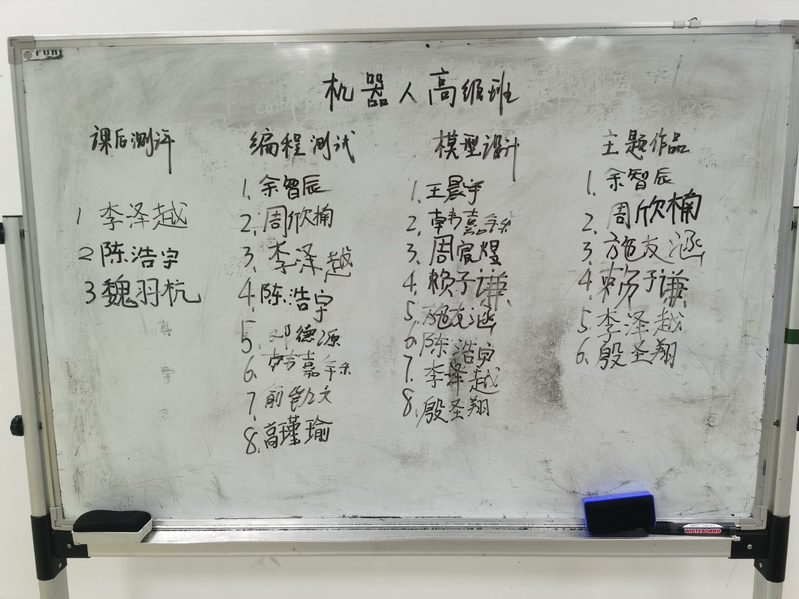 机器人高级班
课后测评
1 李泽越
2 陈浩宇
3 魏羽杭
编程测试
1. 余智辰
2. 周欣楠
3. 李泽越
4. 陈浩宇
5. 邓德源
6. 韩嘉
7.
8. 高瑾瑜
模型设计
1. 王晨宇
2. 韩嘉
3. 周宸煜
4. 赖子谦
5. 施友涵
6. 陈浩宇
7. 李泽越
8. 殷圣翔
主题作品
1. 余智辰
2. 周欣楠
3. 施友涵
4. 赖子谦
5. 李泽越
6. 殷圣翔
WHITEBOARD